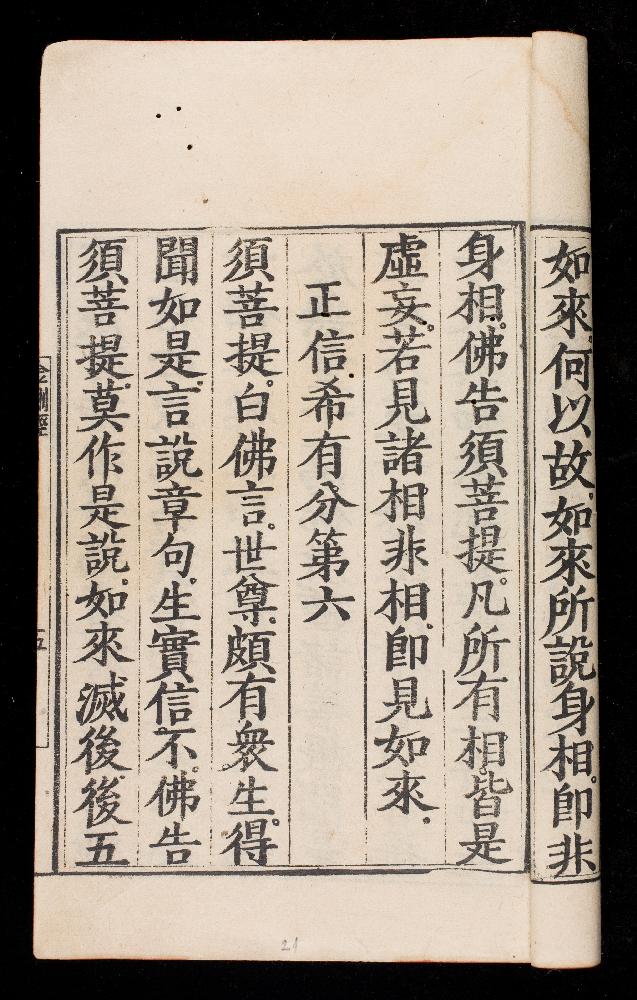 如來何以故如來所說身相。即非
身相。佛告須菩提。凡所有相。皆是
虛妄。若見諸相非相。即見如來。
正信希有分第六
須菩提。白佛言。世尊。頗有衆生。得
聞如是。言說章句。生實信不。佛告
須菩提。莫作是說。如來滅後。後五
金剛經
五
21